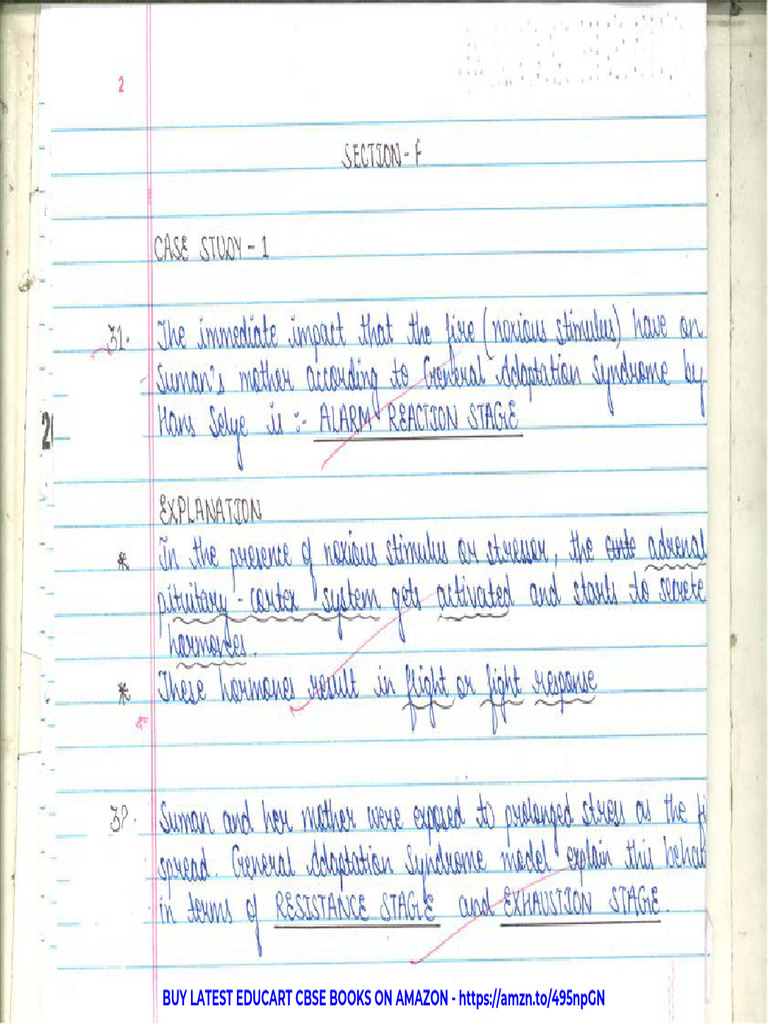 2
SECTION-F
CASE STUDY-1
31. The immediate impact that the fire (noxious stimulus) have on
Suman's mother according to General Adaptation Syndrome by
Hans Selye is :- ALARM REACTION STAGE
EXPLANATION
* In the presence of noxious stimulus or stressor, the adrenal
pituitary-cortex system gets activated and starts to secrete
hormones.
* These hormones result in flight or fight response
32. Suman and her mother were exposed to prolonged stress as the fi
spread. General Adaptation Syndrome model explain this behab
in terms of RESISTANCE STAGE and EXHAUSTION STAGE.
BUY LATEST EDUCART CBSE BOOKS ON AMAZON - https://amzn.to/495npGN